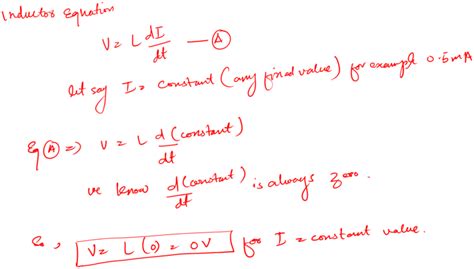 Inductor Equation
V = L dI/dt — (A)
let say I = constant (any fixed value) for example 0.5mA
Eq (A) => V = L d(constant)/dt
we know d(constant)/dt is always zero.
So, V = L(0) = 0V for I = constant value.